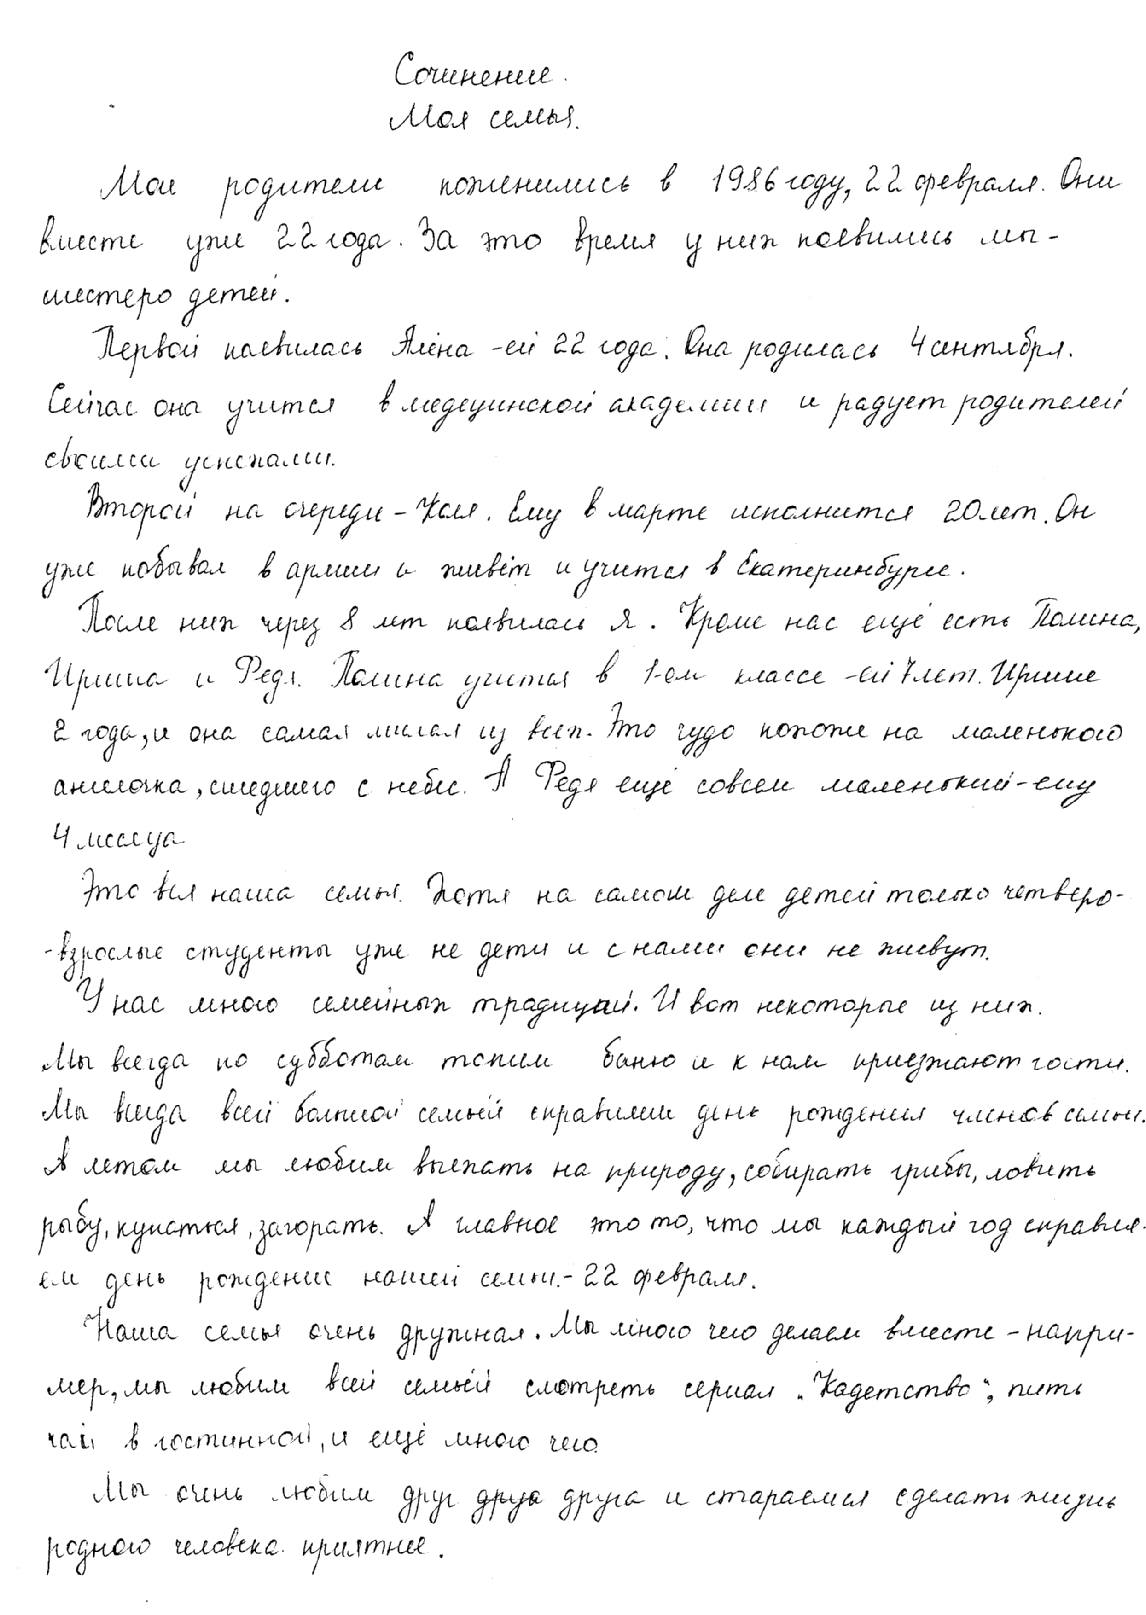 Сочинение.
Моя семья.
Мои родители поженились в 1986 году, 22 февраля. Они
вместе уже 22 года. За это время у них появились мы -
шестеро детей.
Первой появилась Алёна - ей 22 года. Она родилась 4 сентября.
Сейчас она учится в медецинской академии и радует родителей
своими успехами.
Второй на очереди - Коля. Ему в марте исполнится 20 лет. Он
уже побывал в армии и живёт и учится в Екатеринбурге.
После них через 8 лет появилась я. Кроме нас ещё есть Полина,
Ириша и Федя. Полина учится в 1-ом классе - ей 7 лет. Ирише
2 года, и она самая милая из всех. Это чудо похоже на маленького
ангелочка, сшедшего с небес. А Федя ещё совсем маленький - ему
4 месяца
Это вся наша семья. Хотя на самом деле детей только четверо-
-взрослые студенты уже не дети и с нами они не живут.
У нас много семейных традиций. И вот некоторые из них.
Мы всегда по субботам топим баню и к нам приезжают гости.
Мы всегда всей большой семьёй справляем день рождения членов семьи.
А летом мы любим выехать на природу, собирать грибы, ловить
рыбу, купаться, загорать. А главное это то, что мы каждый год справля-
ем день рождение нашей семьи - 22 февраля.
Наша семья очень дружная. Мы много чего делаем вместе - напри-
мер, мы любим всей семьёй смотреть сериал „Кадетство“, пить
чай в гостинной, и ещё много чего
Мы очень любим друг друга и стараемся сделать жизнь
родного человека приятнее.